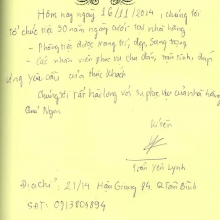 Hôm nay ngày 16/11/2014, chúng tôi
tổ chức tiệc 30 năm ngày cưới tại nhà hàng
- Phòng tiệc được trang trí, đẹp, sang trọng
- Các nhân viên phục vụ chu đáo, tận tình, đáp
ứng yêu cầu của thực khách
Chúng tôi rất hài lòng với sự phục vụ của nhà hàng
Quí Ngon
Kí tên
Trần Yến Lynh
Địa chỉ: 21/14 Hậu Giang P4. Q Tân Bình
SĐT: 0913808894